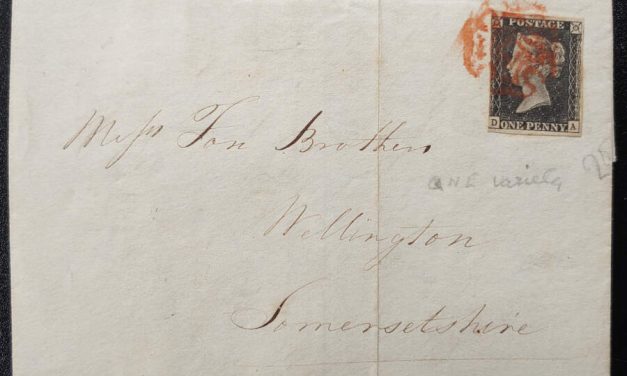 POSTAGE
D ONE PENNY A
Messrs Fox Brothers
ONE variety
Wellington
Somersetshire